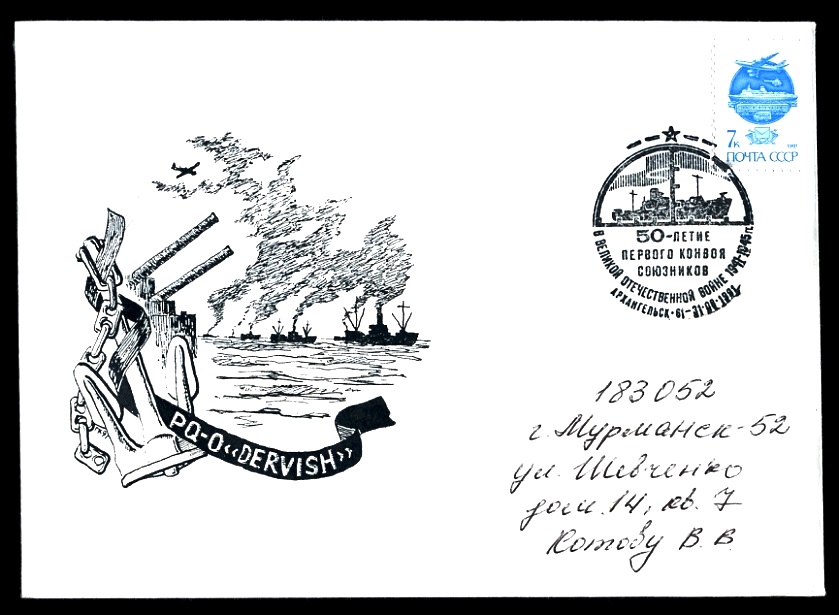 7к
1991
ПОЧТА СССР
50-ЛЕТИЕ
ПЕРВОГО КОНВОЯ
СОЮЗНИКОВ
В ВЕЛИКОЙ ОТЕЧЕСТВЕННОЙ ВОЙНЕ 1941-1945 гг.
АРХАНГЕЛЬСК·61-31.08.1991
PQ-0 «DERVISH»
183052
г. Мурманск-52
ул. Шевченко
дом 14, кв. 7
Котову В. В.